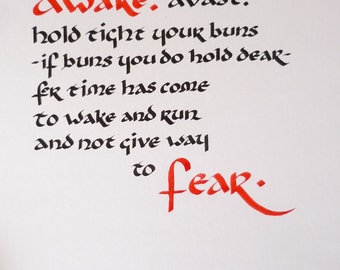 awake. avast.
hold tight your buns
-if buns you do hold dear-
fer time has come
to wake and run
and not give way
to fear.